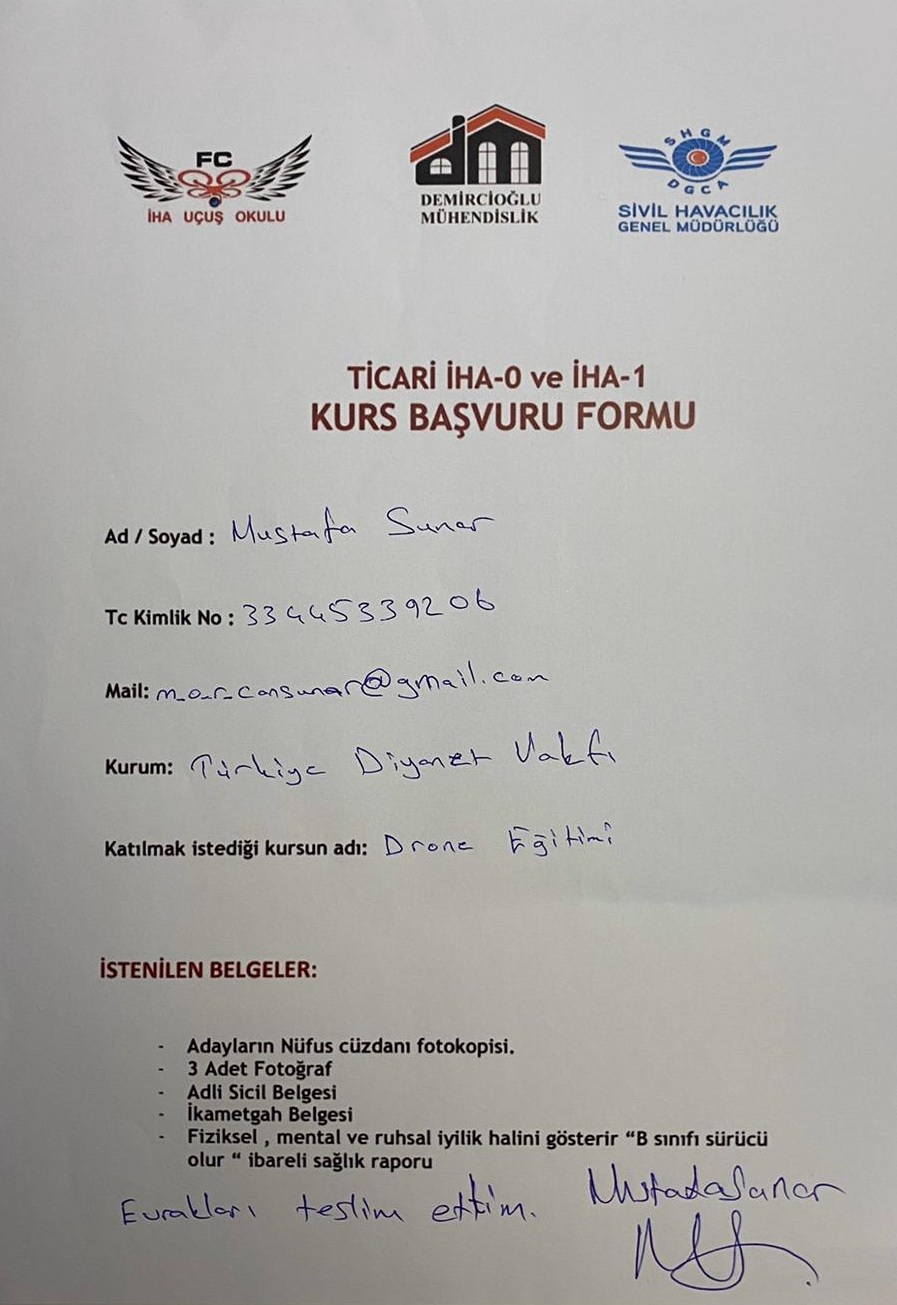 FC
İHA UÇUŞ OKULU
dm
DEMİRCİOĞLU
MÜHENDİSLİK
SHGM
DGCA
SİVİL HAVACILIK
GENEL MÜDÜRLÜĞÜ
TİCARİ İHA-0 ve İHA-1
KURS BAŞVURU FORMU
Ad / Soyad : Mustafa Sunar
Tc Kimlik No : 33445339206
Mail: m_a_r_cansunar@gmail.com
Kurum: Türkiye Diyanet Vakfı
Katılmak istediği kursun adı: Drone Eğitimi
İSTENİLEN BELGELER:
- Adayların Nüfus cüzdanı fotokopisi.
- 3 Adet Fotoğraf
- Adli Sicil Belgesi
- İkametgah Belgesi
- Fiziksel , mental ve ruhsal iyilik halini gösterir “B sınıfı sürücü
olur “ ibareli sağlık raporu
Evrakları teslim ettim. Mustafa Sunar